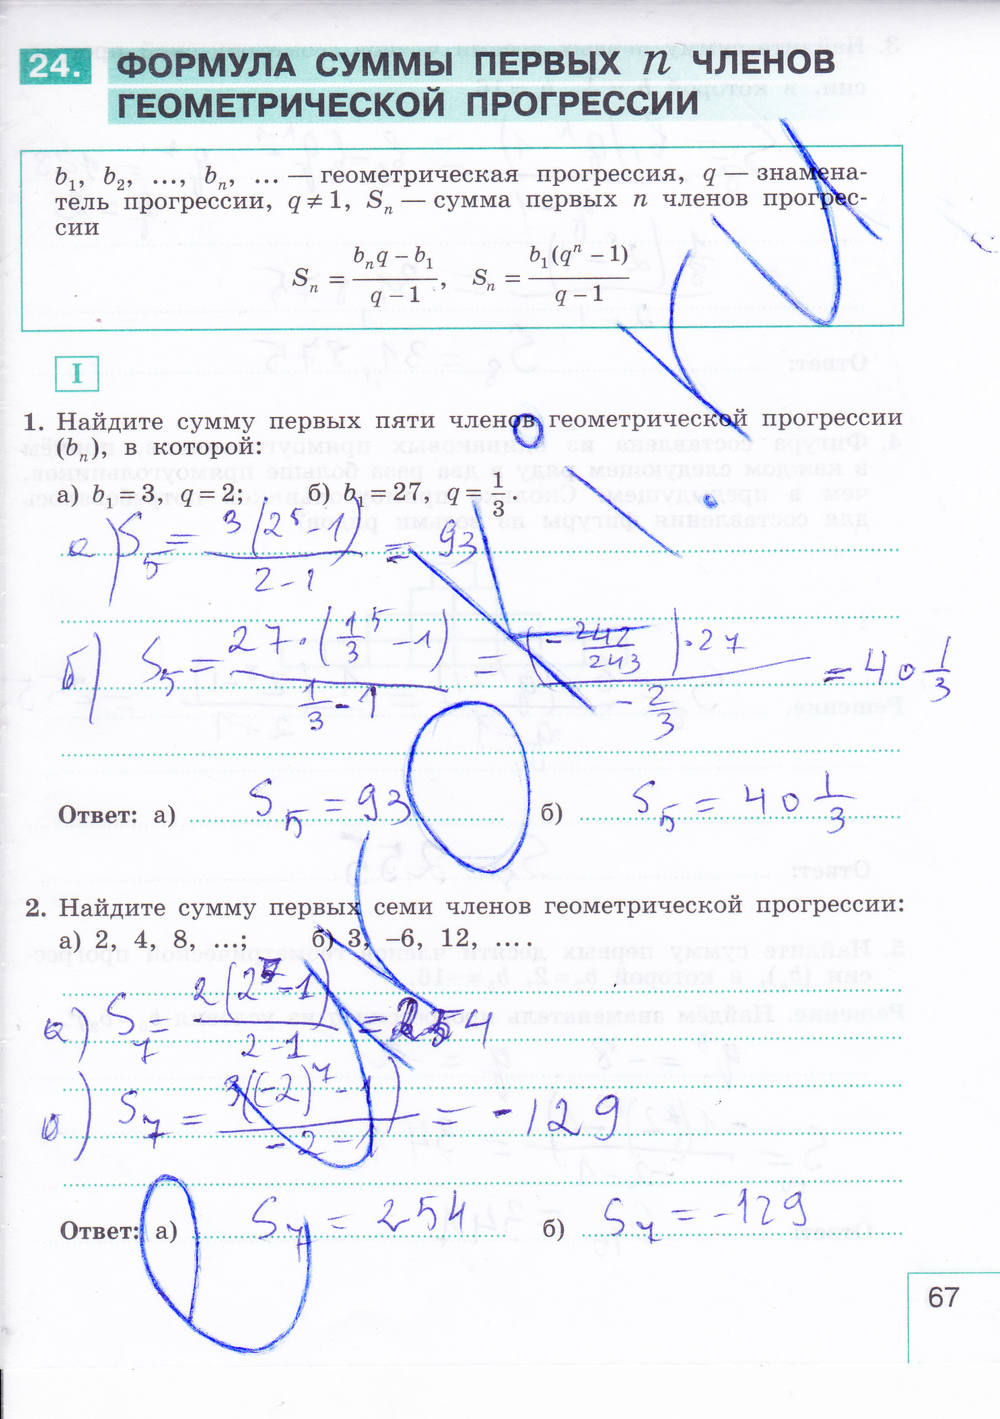 24. ФОРМУЛА СУММЫ ПЕРВЫХ n ЧЛЕНОВ
ГЕОМЕТРИЧЕСКОЙ ПРОГРЕССИИ
b₁, b₂, ..., bₙ, ... — геометрическая прогрессия, q — знамена-
тель прогрессии, q ≠ 1, Sₙ — сумма первых n членов прогрес-
сии
Sₙ = (bₙq − b₁)/(q − 1), Sₙ = b₁(qⁿ − 1)/(q − 1)
I
1. Найдите сумму первых пяти членов геометрической прогрессии
(bₙ), в которой:
а) b₁ = 3, q = 2; б) b₁ = 27, q = 1/3.
а) S₅ = 3(2⁵−1)/(2−1) = 93
б) S₅ = 27·(1/3⁵ −1)/(1/3 − 1) = (−242/243)·27/(−2/3) = 40 1/3
Ответ: а) S₅ = 93 б) S₅ = 40 1/3
2. Найдите сумму первых семи членов геометрической прогрессии:
а) 2, 4, 8, ...; б) 3, −6, 12, ... .
а) S₇ = 2(2⁷−1)/(2−1) = 254
б) S₇ = 3((−2)⁷−1)/(−2−1) = −129
Ответ: а) S₇ = 254 б) S₇ = −129
67